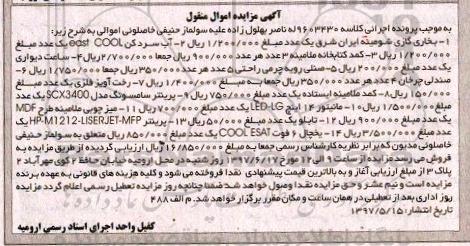 آگهی مزایده اموال منقول
به موجب پرونده اجرائی کلاسه ۹۶۰۳۴۳۰ له ناصر بهلول زاده علیه سولماز حنیفی خاصلونی اموالی به شرح زیر:
۱- بخاری گازی شومینه ایران شرق یک عدد مبلغ ۱/۲۰۰/۰۰۰ ریال ۲- آب سرد کن east COOL یک عدد مبلغ
۱/۲۰۰/۰۰۰ ریال ۳- کمد کتابخانه ملامینه ۳ عدد هر عدد ۹۰۰/۰۰۰ ریال جمعا ۲/۷۰۰/۰۰۰ ریال ۴- ساعت دیواری
یک عدد مبلغ ۲۰۰/۰۰۰ ریال ۵- صندلی رویه چرمی راحتی ۵ عدد هر عدد ۳۵۰/۰۰۰ ریال جمعا ۱/۷۵۰/۰۰۰ ریال ۶-
صندلی چرخان ۴ عدد هر عدد ۳۵۰/۰۰۰ ریال جمعا به مبلغ ۱/۴۰۰/۰۰۰ ریال ۷- رخت آویز فلزی یک عدد مبلغ
۱۵۰/۰۰۰ ریال ۸- کمد ملامینه ایستاده یک عدد مبلغ ۷۵۰/۰۰۰ ریال ۹- پرینتر سامسونگ مدل SCX3400 یک عدد
مبلغ ۱/۵۰۰/۰۰۰ ریال ۱۰- مانیتور ۱۴ اینچ LED-LG یک عدد مبلغ ۷۰۰/۰۰۰ ریال ۱۱- میز چوبی ملامینه طرح MDF
یک عدد مبلغ ۹۰۰/۰۰۰ ریال ۱۲- تابلو یک عدد مبلغ ۵۰/۰۰۰ ریال ۱۳- پرینتر HP-M1212-LISERJET-MFP یک
عدد مبلغ ۳/۵۰۰/۰۰۰ ریال ۱۴- یخچال ۶ فوت COOL ESAT یک عدد مبلغ ۸۵۰/۰۰۰ ریال متعلق به سولماز حنیفی
خاصلونی مدیون که برابر نظریه کارشناس رسمی جمعا به مبلغ ۱۶/۸۵۰/۰۰۰ ریال ارزیابی گردیده از طریق مزایده به
فروش می رسد مزایده از ساعت ۹ الی ۱۲ مورخ ۱۳۹۷/۶/۱۷ روز شنبه در محل ارومیه خیابان حافظ ۲ کوی مهرآباد ۲
پلاک ۳ از مبلغ ارزیابی آغاز و به بالاترین قیمت پیشنهادی نقدا فروخته می شود و کلیه هزینه های قانونی به عهده برنده
مزایده است و نیم عشر و حق مزایده نقدا وصول خواهد شد ضمنا چنانچه روز مزایده تعطیل رسمی اعلام گردد مزایده
روز اداری بعد از تعطیلی در همان ساعت و مکان مقرر برگزار خواهد شد. م الف ۴۸۸
تاریخ انتشار: ۱۳۹۷/۵/۱۵
کفیل واحد اجرای اسناد رسمی ارومیه